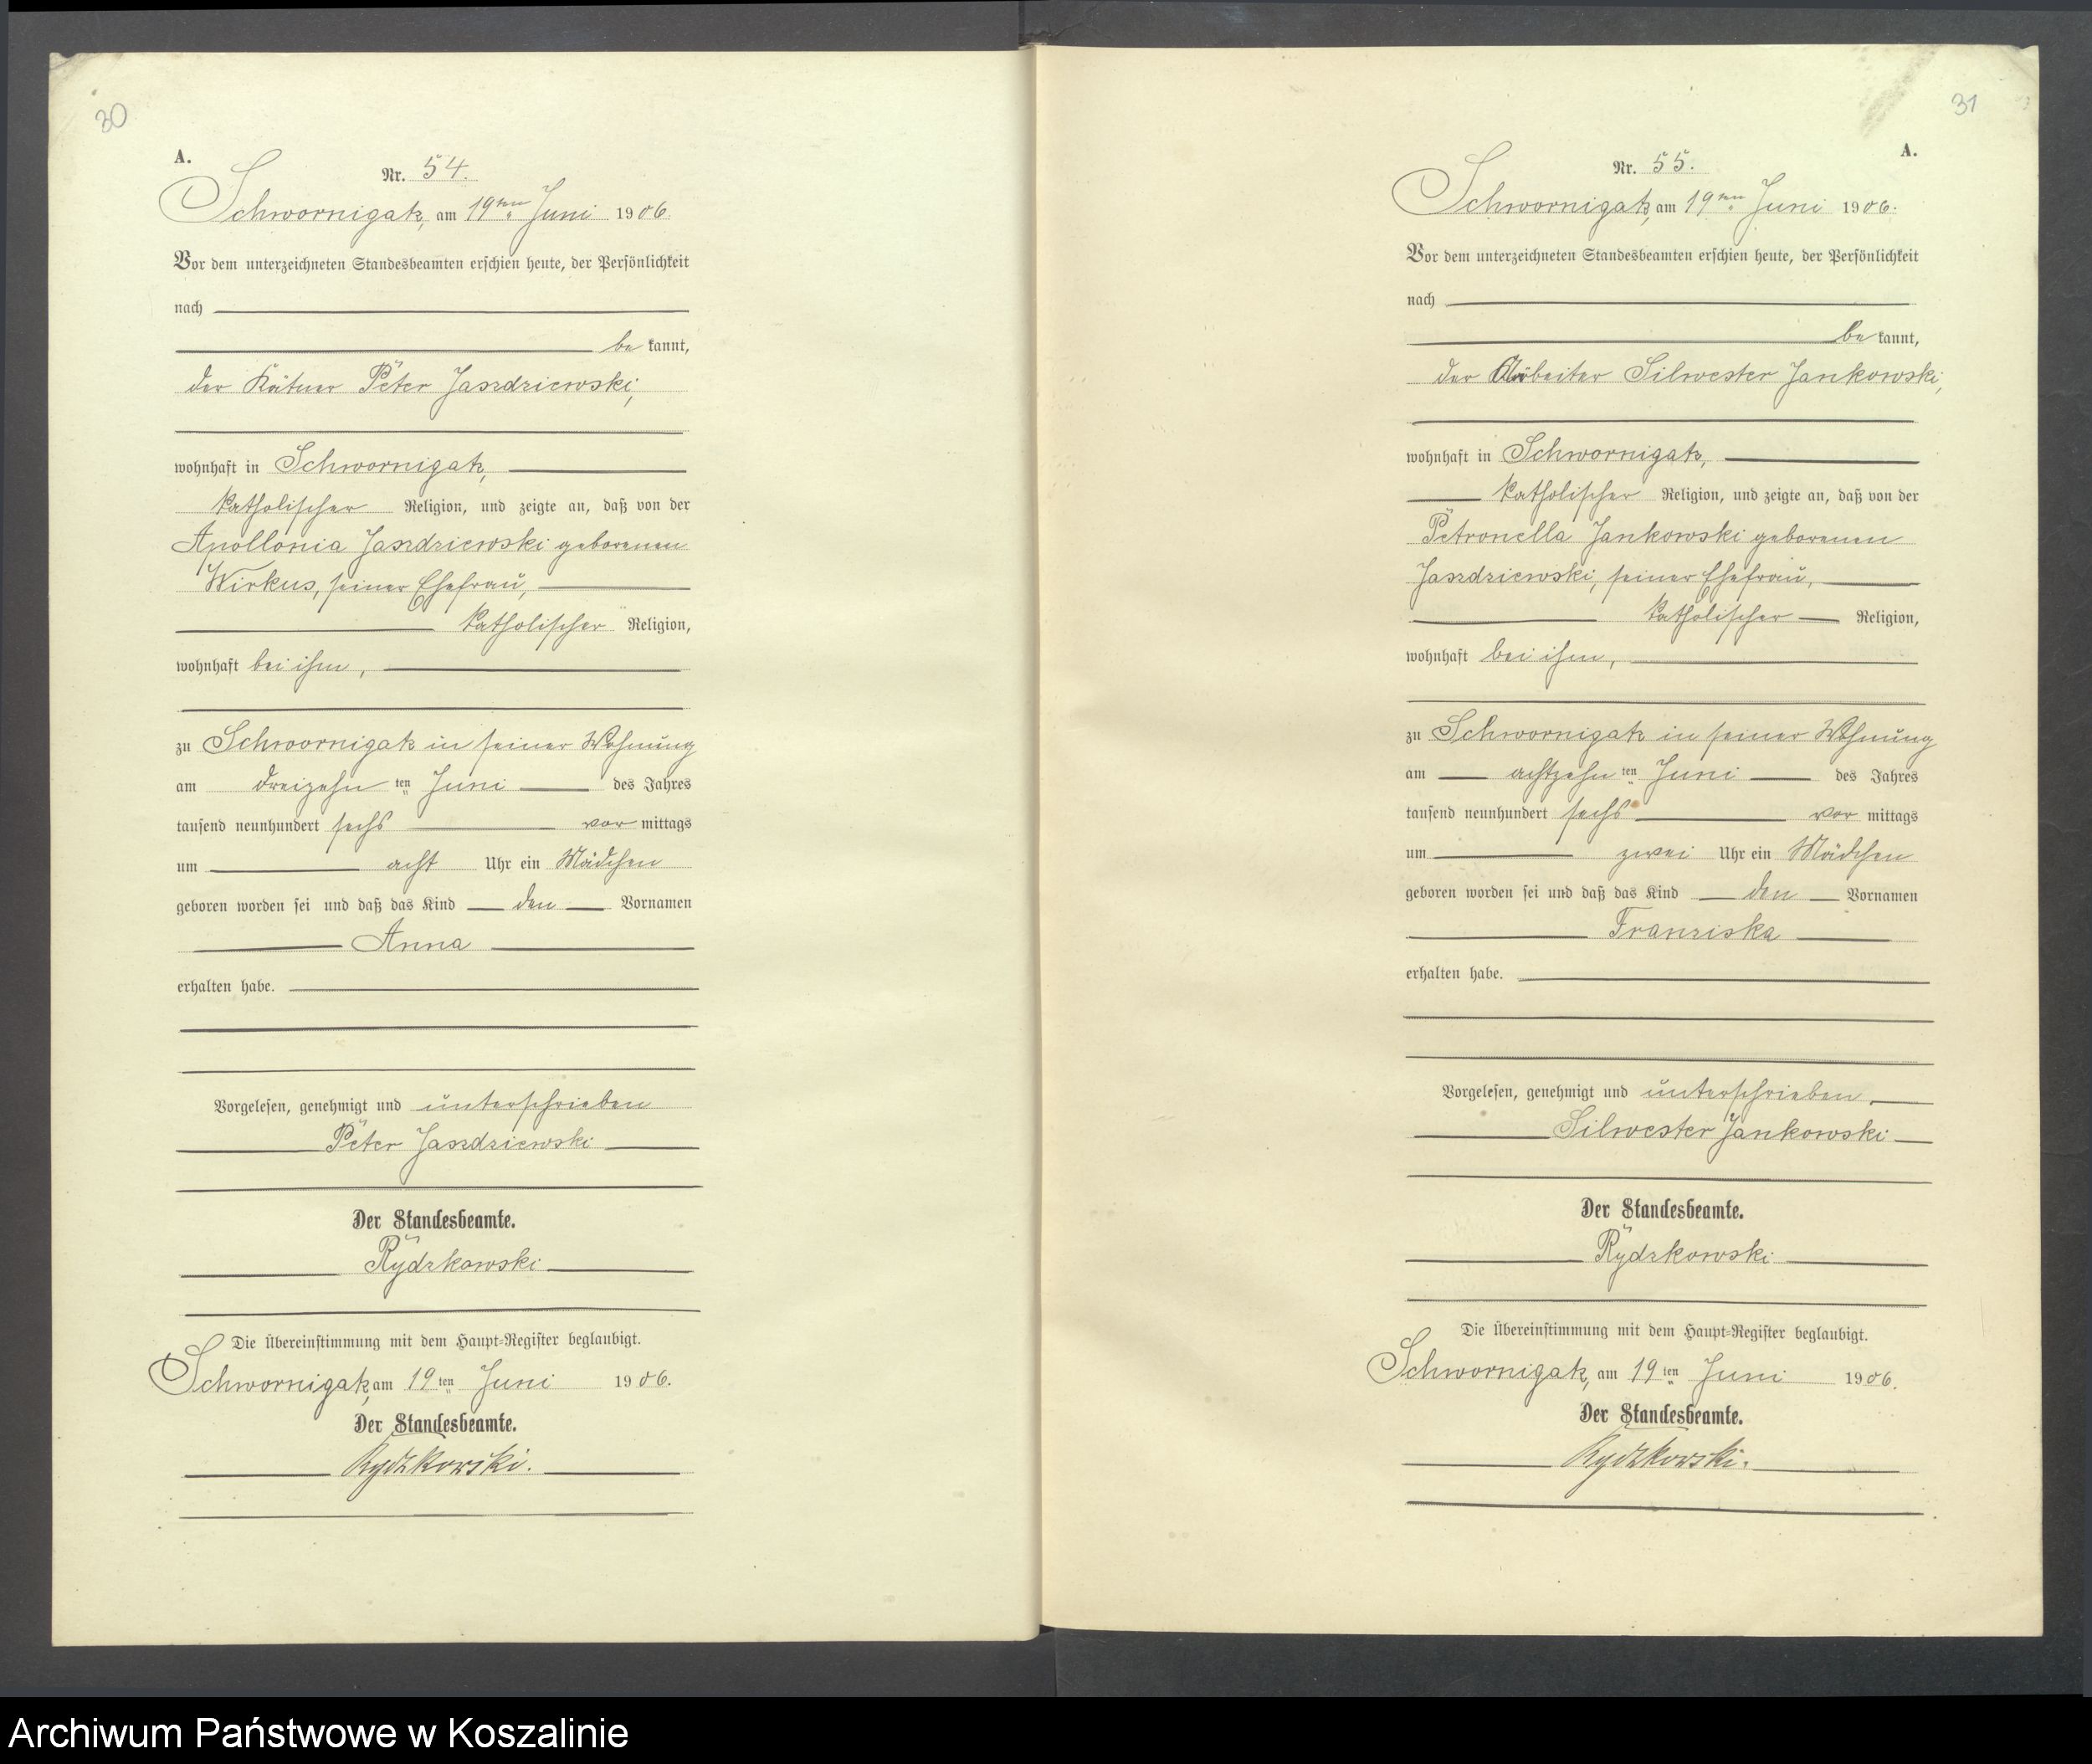 30
A.
Nr. 54.
Schwornigatz, am 19ten Juni 1906.
Vor dem unterzeichneten Standesbeamten erschien heute, der Persönlichkeit
nach
be kannt,
der Kätner Peter Jaszdziewski,
wohnhaft in Schwornigatz,
katholischer Religion, und zeigte an, daß von der
Apollonia Jaszdziewski geborenen
Wirkus, seiner Ehefrau,
katholischer Religion,
wohnhaft bei ihm,
zu Schwornigatz in seiner Wohnung
am dreizehn ten Juni des Jahres
tausend neunhundert sechs vor mittags
um acht Uhr ein Mädchen
geboren worden sei und daß das Kind den Vornamen
Anna
erhalten habe.
Vorgelesen, genehmigt und unterschrieben
Peter Jaszdziewski
Der Standesbeamte.
Rydzkowski
Die Übereinstimmung mit dem Haupt-Register beglaubigt.
Schwornigatz, am 19 ten Juni 1906.
Der Standesbeamte.
Rydzkowski.
31
A.
Nr. 55.
Schwornigatz, am 19ten Juni 1906.
Vor dem unterzeichneten Standesbeamten erschien heute, der Persönlichkeit
nach
be kannt,
der Arbeiter Silwester Jankowski,
wohnhaft in Schwornigatz,
katholischer Religion, und zeigte an, daß von der
Petronella Jankowski geborenen
Jaszdziewski, seiner Ehefrau,
katholischer Religion,
wohnhaft bei ihm,
zu Schwornigatz in seiner Wohnung
am achtzehn ten Juni des Jahres
tausend neunhundert sechs vor mittags
um zwei Uhr ein Mädchen
geboren worden sei und daß das Kind den Vornamen
Franziska
erhalten habe.
Vorgelesen, genehmigt und unterschrieben,
Silwester Jankowski
Der Standesbeamte.
Rydzkowski
Die Übereinstimmung mit dem Haupt-Register beglaubigt.
Schwornigatz, am 19 ten Juni 1906.
Der Standesbeamte.
Rydzkowski.
Archiwum Państwowe w Koszalinie